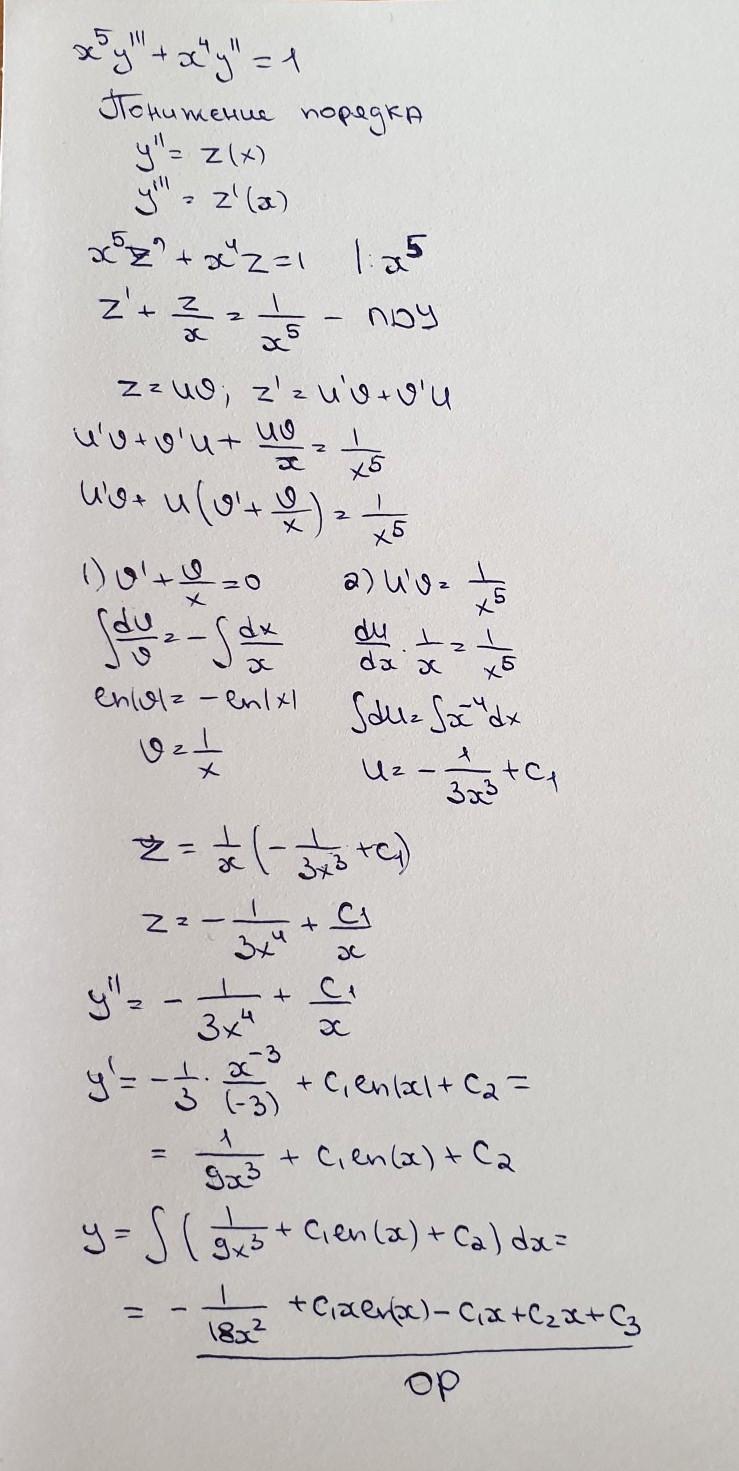 x⁵y''' + x⁴y'' = 1
Понижение порядка
y'' = z(x)
y''' = z'(x)
x⁵z' + x⁴z = 1 |: x⁵
z' + z/x = 1/x⁵ – ЛДУ
z = uv; z' = u'v + v'u
u'v + v'u + uv/x = 1/x⁵
u'v + u(v' + v/x) = 1/x⁵
1) v' + v/x = 0 2) u'v = 1/x⁵
∫dv/v = -∫dx/x du/dx · 1/x = 1/x⁵
ln|v| = -ln|x| ∫du = ∫x⁻⁴dx
v = 1/x u = -1/(3x³) + C₁
z = 1/x(-1/(3x³) + C₁)
z = -1/(3x⁴) + C₁/x
y'' = -1/(3x⁴) + C₁/x
y' = -1/3 · x⁻³/(-3) + C₁ln|x| + C₂ =
= 1/(9x³) + C₁ln(x) + C₂
y = ∫(1/(9x³) + C₁ln(x) + C₂)dx =
= -1/(18x²) + C₁xln(x) - C₁x + C₂x + C₃
ОР